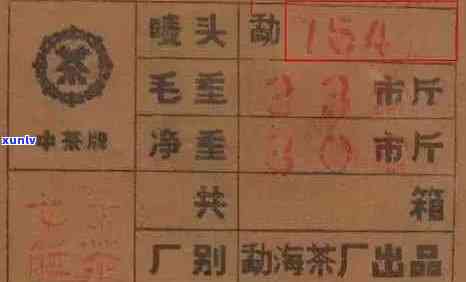 唛头 勐 754
毛重 33 市斤
茶
净重 30 市斤
中茶牌
共 箱
厂别 勐海茶厂出品
xunlv